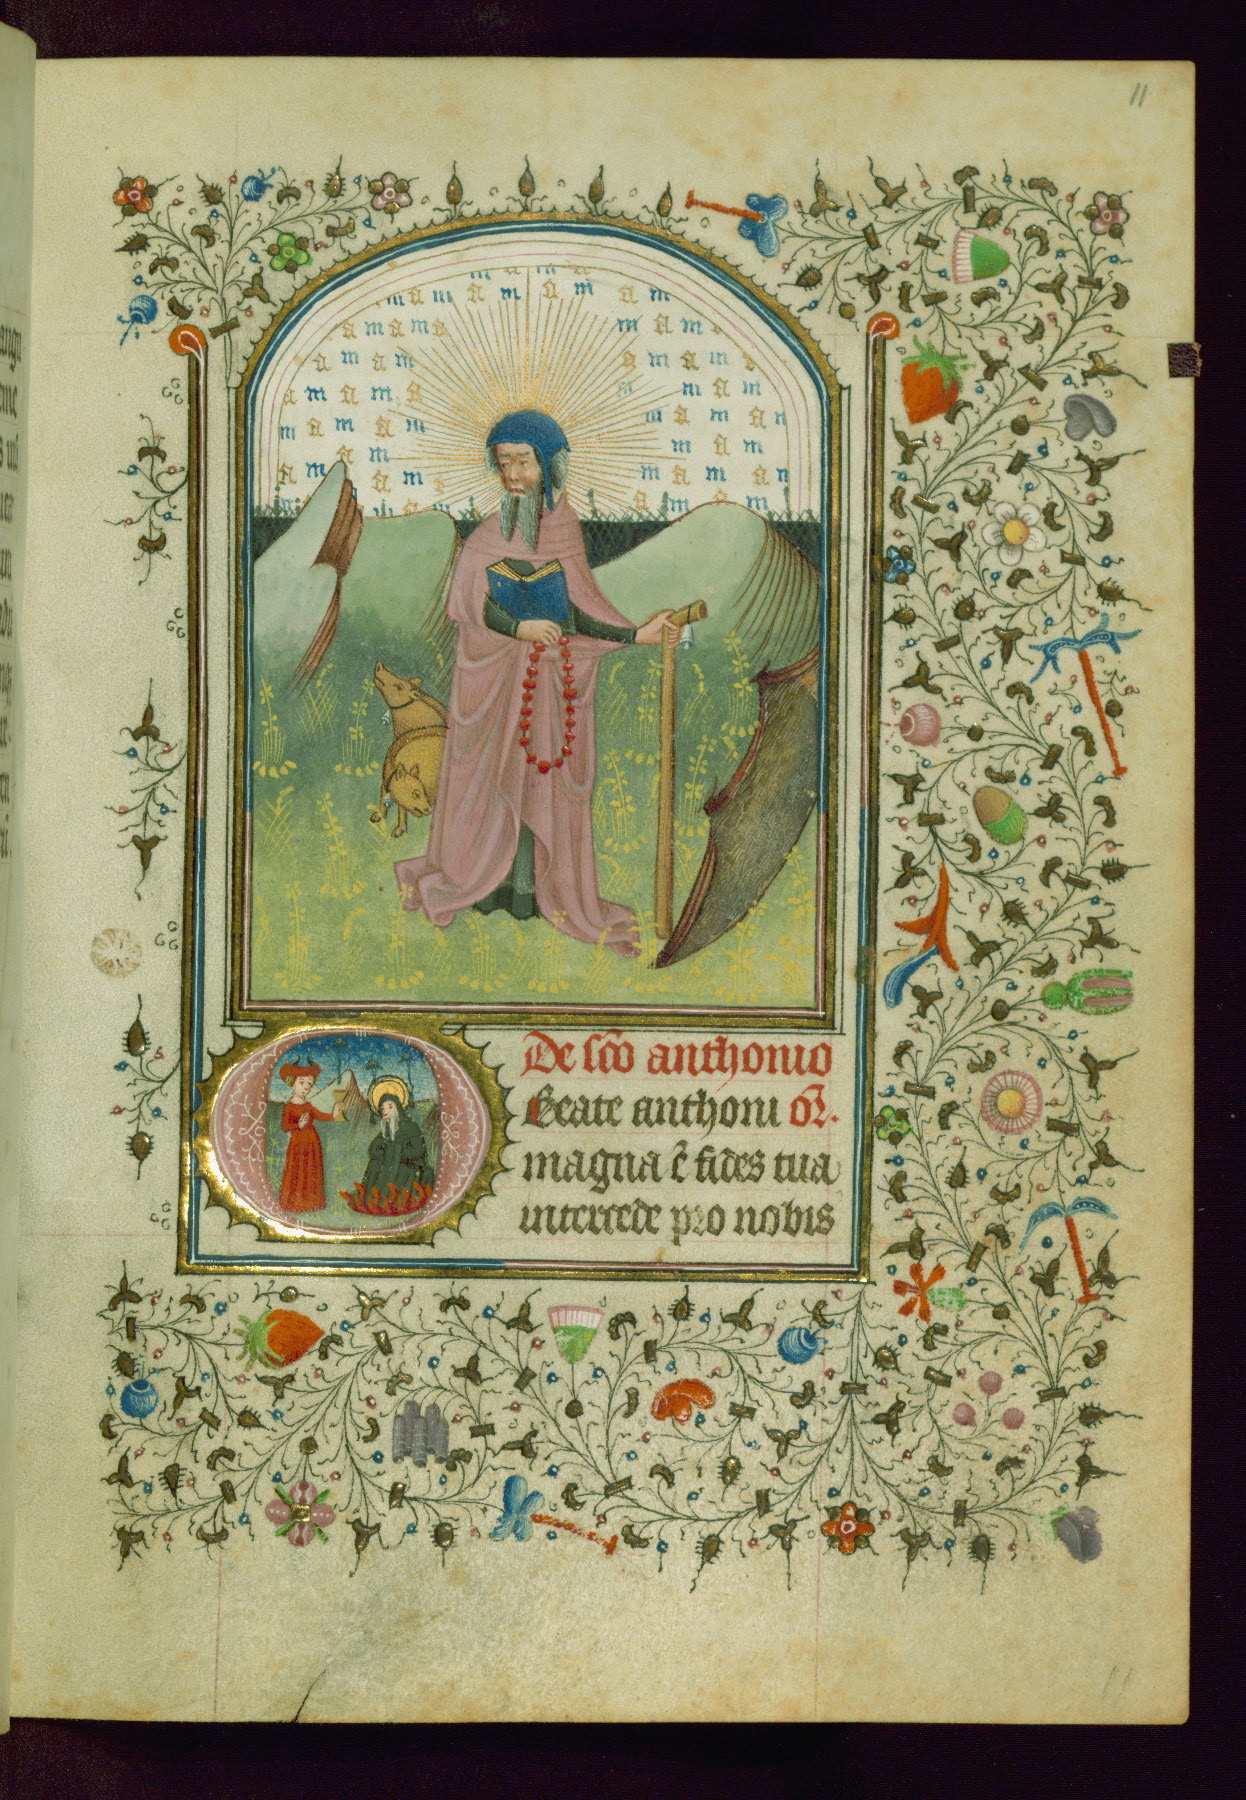 11
De sc̃o anthonio
Beate anthoni or̃.
magna ẽ fides tua
intercede pro nobis